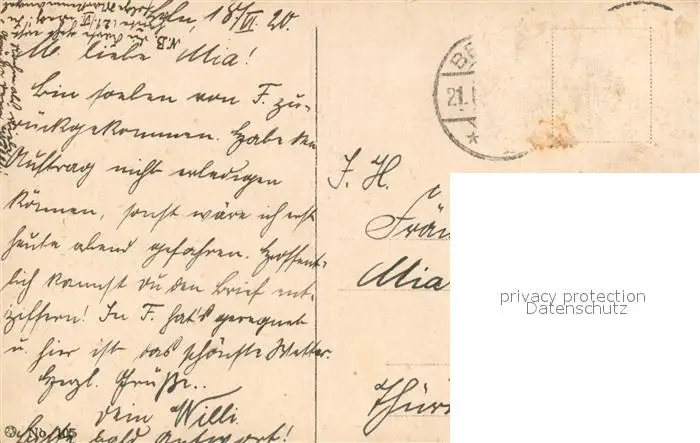 18/VI. 20.
M. liebe Mia!
Bin soeben von F. zu-
rückgekommen. Habe den
Auftrag nicht erledigen
können, sonst wäre ich erst
heute abend gefahren. Hoffent-
lich kannst Du den Brief ent-
ziffern! In F. hat's geregnet
u. hier ist das schönste Wetter.
Herzl. Grüße..
Dein Willi
bald Antwort!
N.B. die Karte
No. 105
BE
21.
J. H.
Mia
Thür
privacy protection
Datenschutz